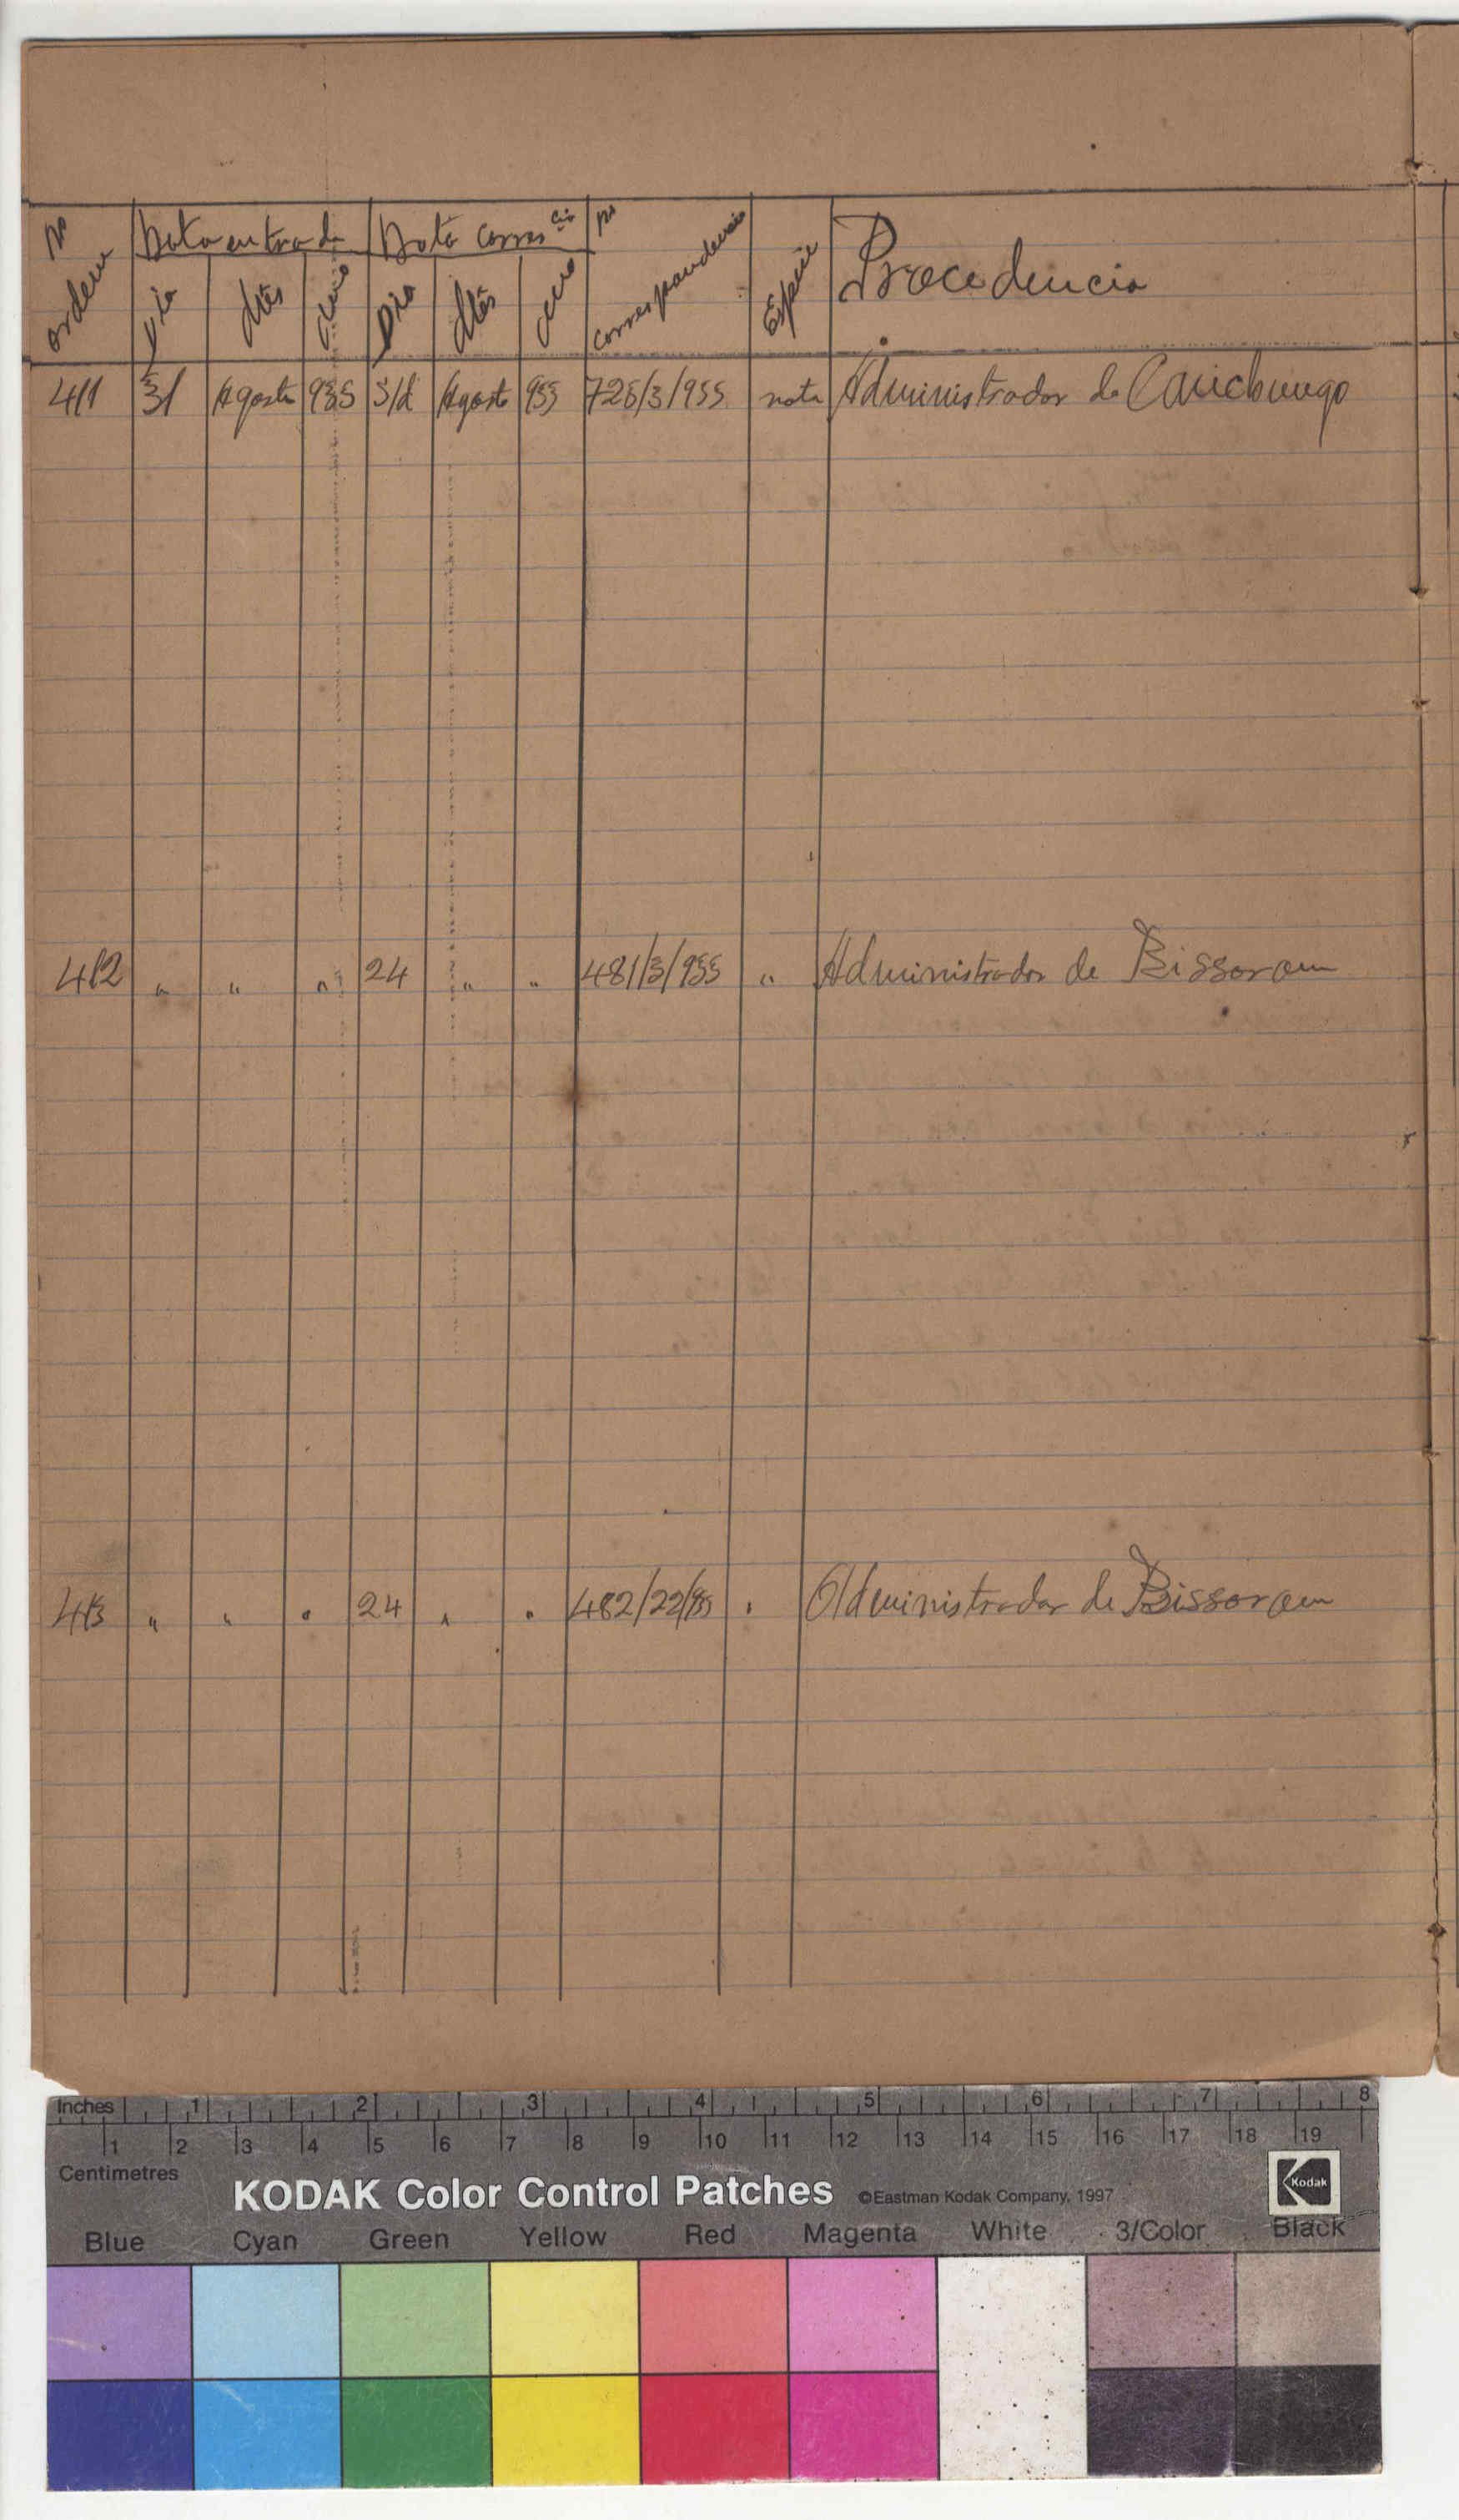 No ordem | Data entrada | Data corres.cia | No correspondencia | Espécie | Procedencia
Dia | Mês | Ano | Dia | Mês | Ano
411 | 31 | Agosto | 955 | S/d | Agosto | 955 | 725/3/955 | nota | Administrador de Canchungo
412 | " | " | " | 24 | " | " | 481/3/955 | " | Administrador de Bissoram
413 | " | " | " | 24 | " | " | 482/22/955 | " | Administrador de Bissoram
Inches 1 2 3 4 5 6 7 8
1 2 3 4 5 6 7 8 9 10 11 12 13 14 15 16 17 18 19
Centimetres
KODAK Color Control Patches ©Eastman Kodak Company, 1997 Kodak
Blue Cyan Green Yellow Red Magenta White 3/Color Black